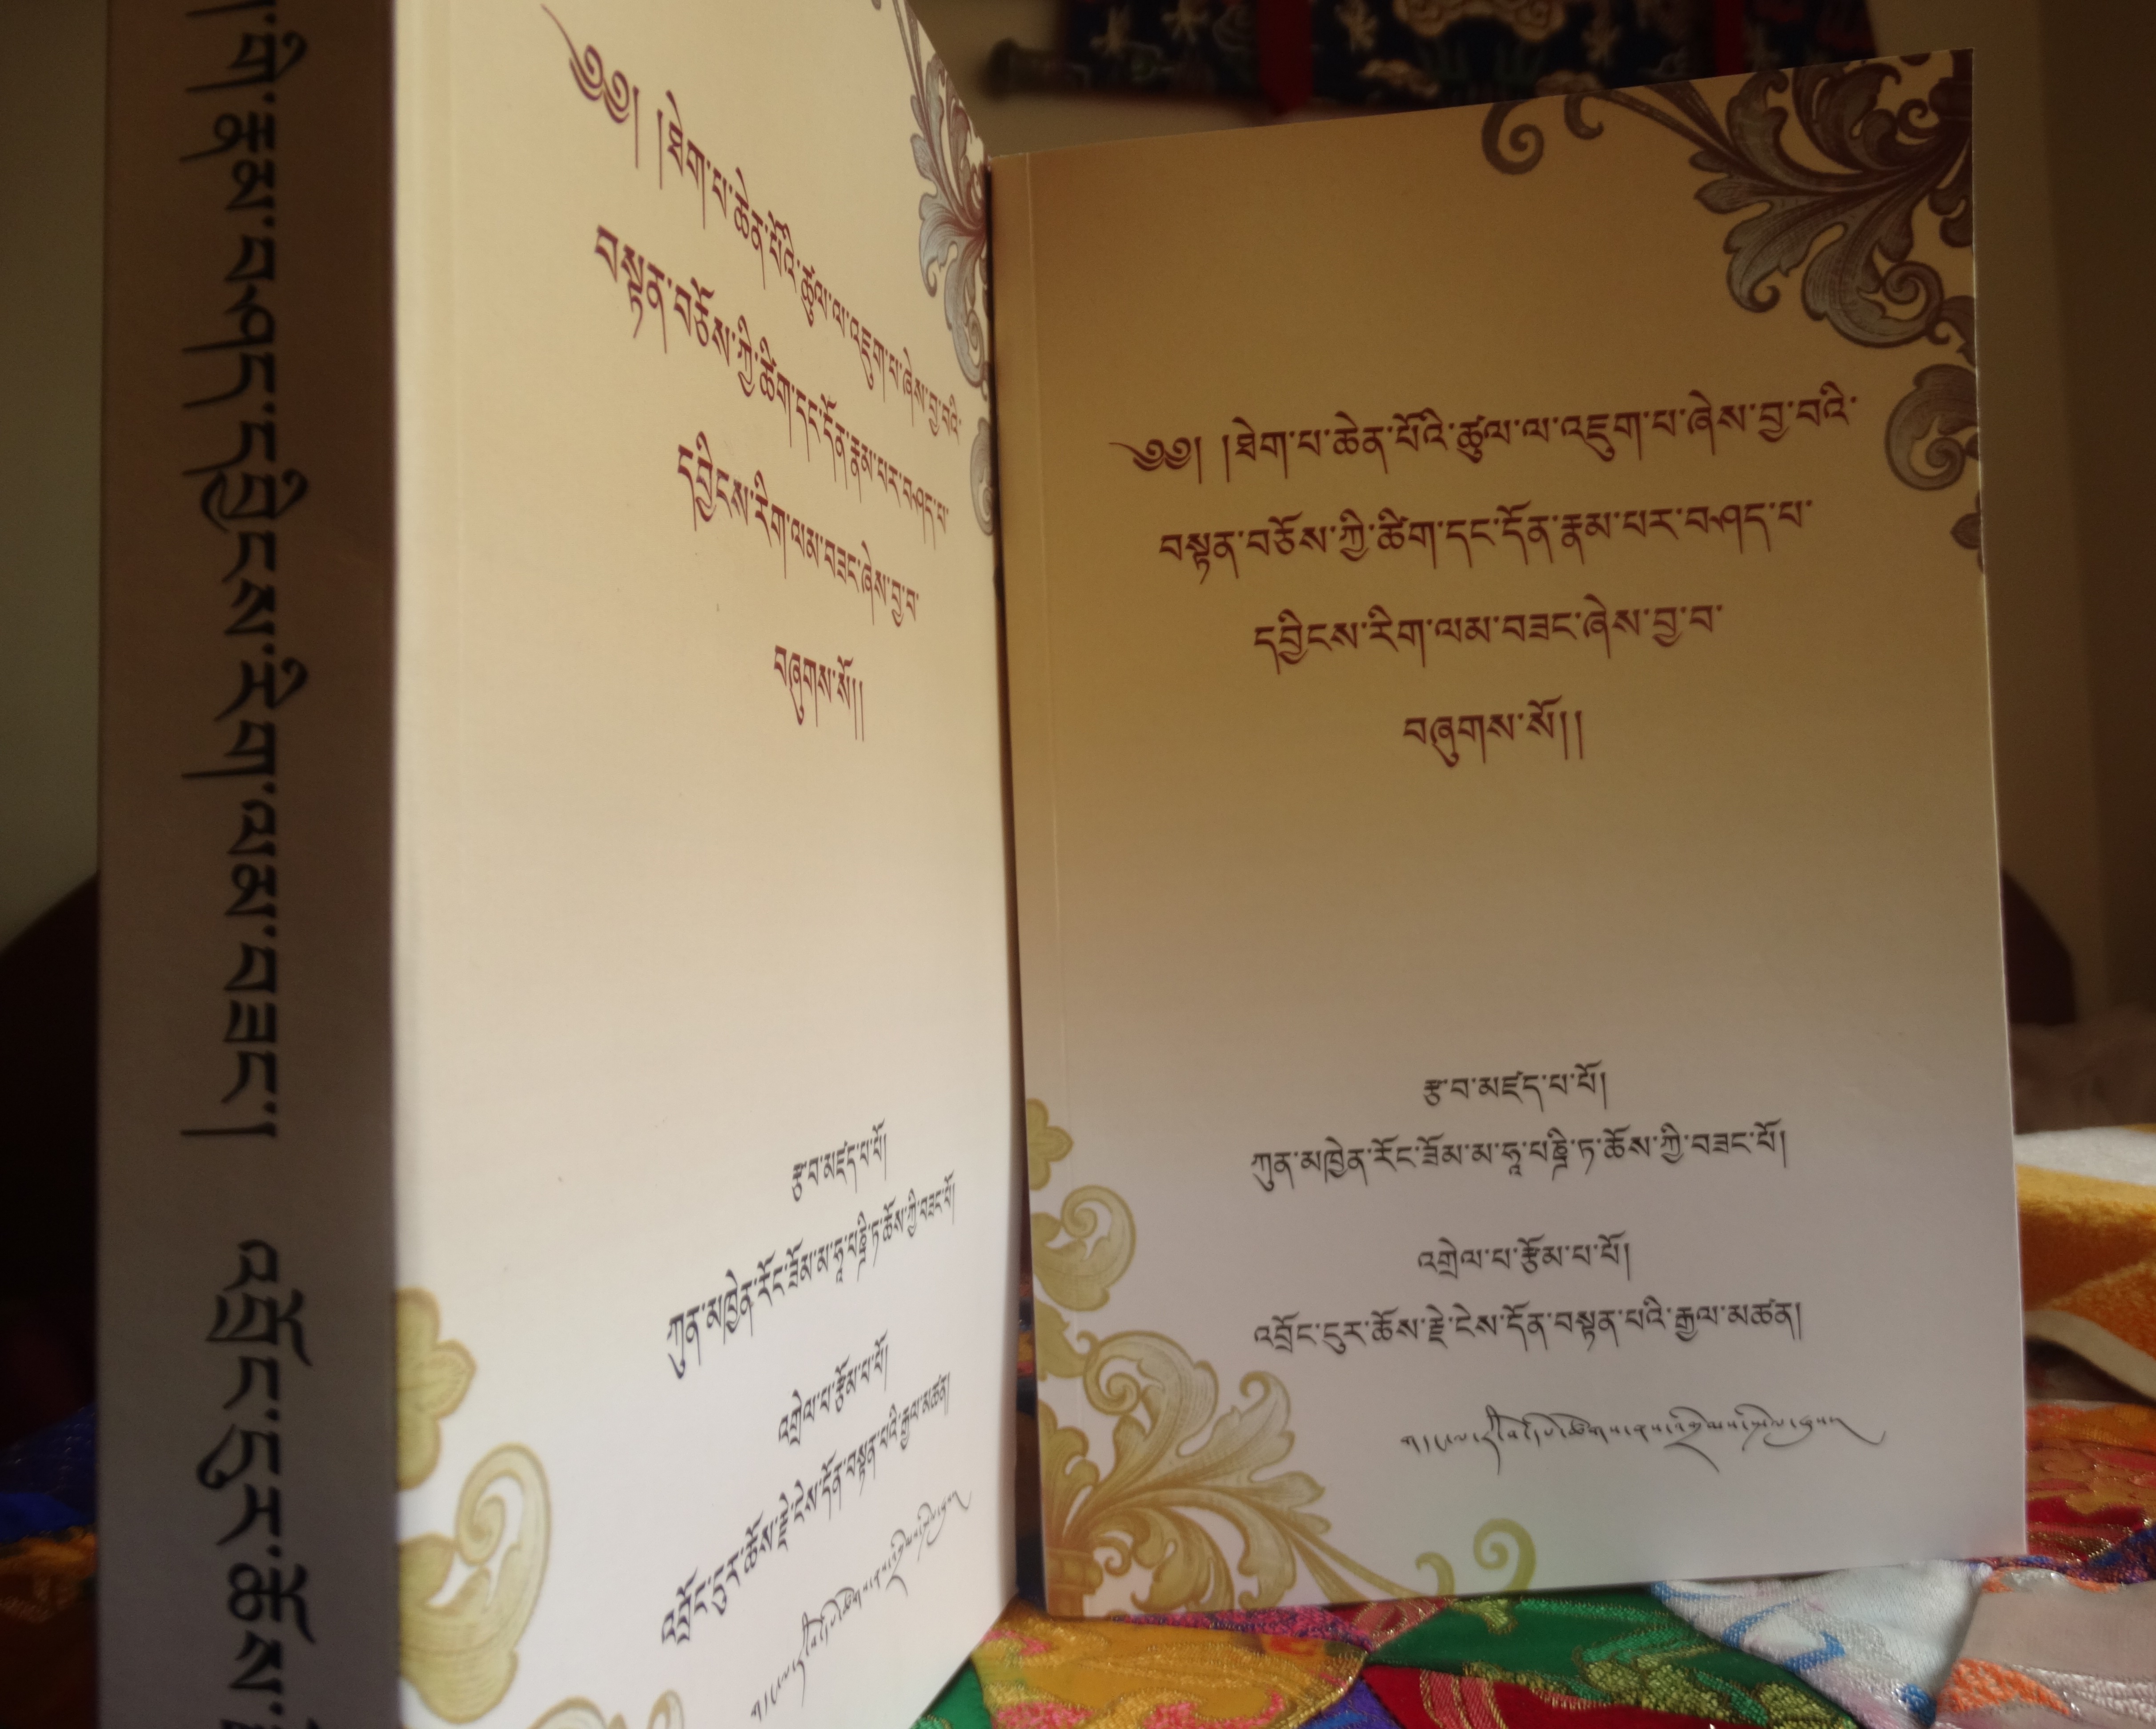 གི་རྣམ་བཤད་དབྱིངས་རིག་ལམ་བཟང་། འབྲོང་དུར་ཆོས་
༄༅། །ཐེག་པ་ཆེན་པོའི་ཚུལ་ལ་འཇུག་པ་ཞེས་བྱ་བའི་
བསྟན་བཅོས་ཀྱི་ཚིག་དང་དོན་རྣམ་པར་བཤད་པ་
དབྱིངས་རིག་ལམ་བཟང་ཞེས་བྱ་བ་
བཞུགས་སོ།།
རྩ་བ་མཛད་པ་པོ།
ཀུན་མཁྱེན་རོང་ཟོམ་མ་ཧཱ་པཎྜི་ཏ་ཆོས་ཀྱི་བཟང་པོ།
འགྲེལ་པ་རྩོམ་པ་པོ།
འབྲོང་དུར་ཆོས་རྗེ་ངེས་དོན་བསྟན་པའི་རྒྱལ་མཚན།
༄༅། །ཐེག་པ་ཆེན་པོའི་ཚུལ་ལ་འཇུག་པ་ཞེས་བྱ་བའི་
བསྟན་བཅོས་ཀྱི་ཚིག་དང་དོན་རྣམ་པར་བཤད་པ་
དབྱིངས་རིག་ལམ་བཟང་ཞེས་བྱ་བ་
བཞུགས་སོ།།
རྩ་བ་མཛད་པ་པོ།
ཀུན་མཁྱེན་རོང་ཟོམ་མ་ཧཱ་པཎྜི་ཏ་ཆོས་ཀྱི་བཟང་པོ།
འགྲེལ་པ་རྩོམ་པ་པོ།
འབྲོང་དུར་ཆོས་རྗེ་ངེས་དོན་བསྟན་པའི་རྒྱལ་མཚན།